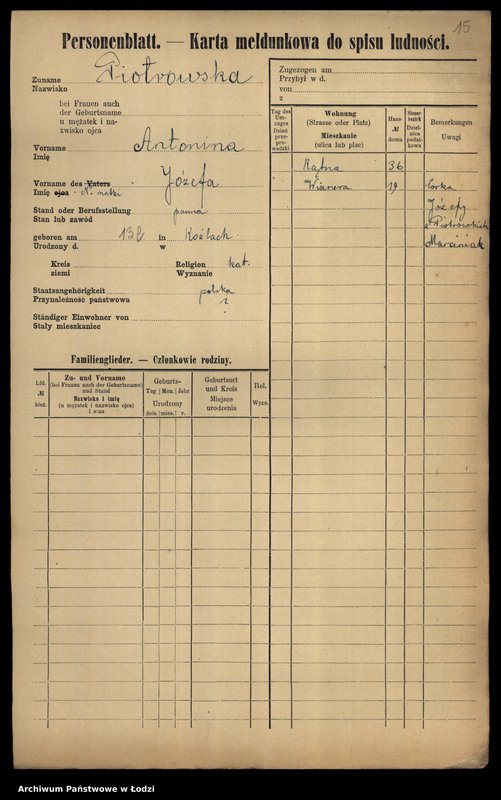 15
Personenblatt. — Karta meldunkowa do spisu ludności.
Zuname Piotrowska
Nazwisko
bei Frauen auch
der Geburtsname
u mężatek i na-
zwisko ojca
Vorname Antonina
Imię
Vorname des Vaters Józefa
Imię ojca matki
Stand oder Berufsstellung panna
Stan lub zawód
geboren am 13 l. in Koźlach
Urodzony d. w
Kreis Religion kat.
ziemi Wyznanie
Staatsangehörigkeit polska
Przynależność państwowa ?
Ständiger Einwohner von
Stały mieszkaniec
Familienglieder. — Członkowie rodziny.
Lfd. № bież.
Zu- und Vorname
(bei Frauen auch der Geburtsname)
und Stand
Nazwisko i imię
(u mężatek i nazwisko ojca)
i stan
Geburts-
Tag Mon. Jahr
Urodzony
dnia mies. r.
Geburtsort
und Kreis
Miejsce
urodzenia
Rel.
Wyzn.
Zugezogen am
Przybył w d.
von
z
Tag des
Um-
zuges
Dzień
prze-
pro-
wadzki
Wohnung
(Strasse oder Platz)
Mieszkanie
(ulica lub plac)
Haus-
№
domu
Steuer-
bezirk
Dziel-
nica
podat-
kowa
Bemerkungen
Uwagi
Kątna 36
Wiznera 19 córka
Józefy
z Piotrowskich
Marciniak
Archiwum Państwowe w Łodzi